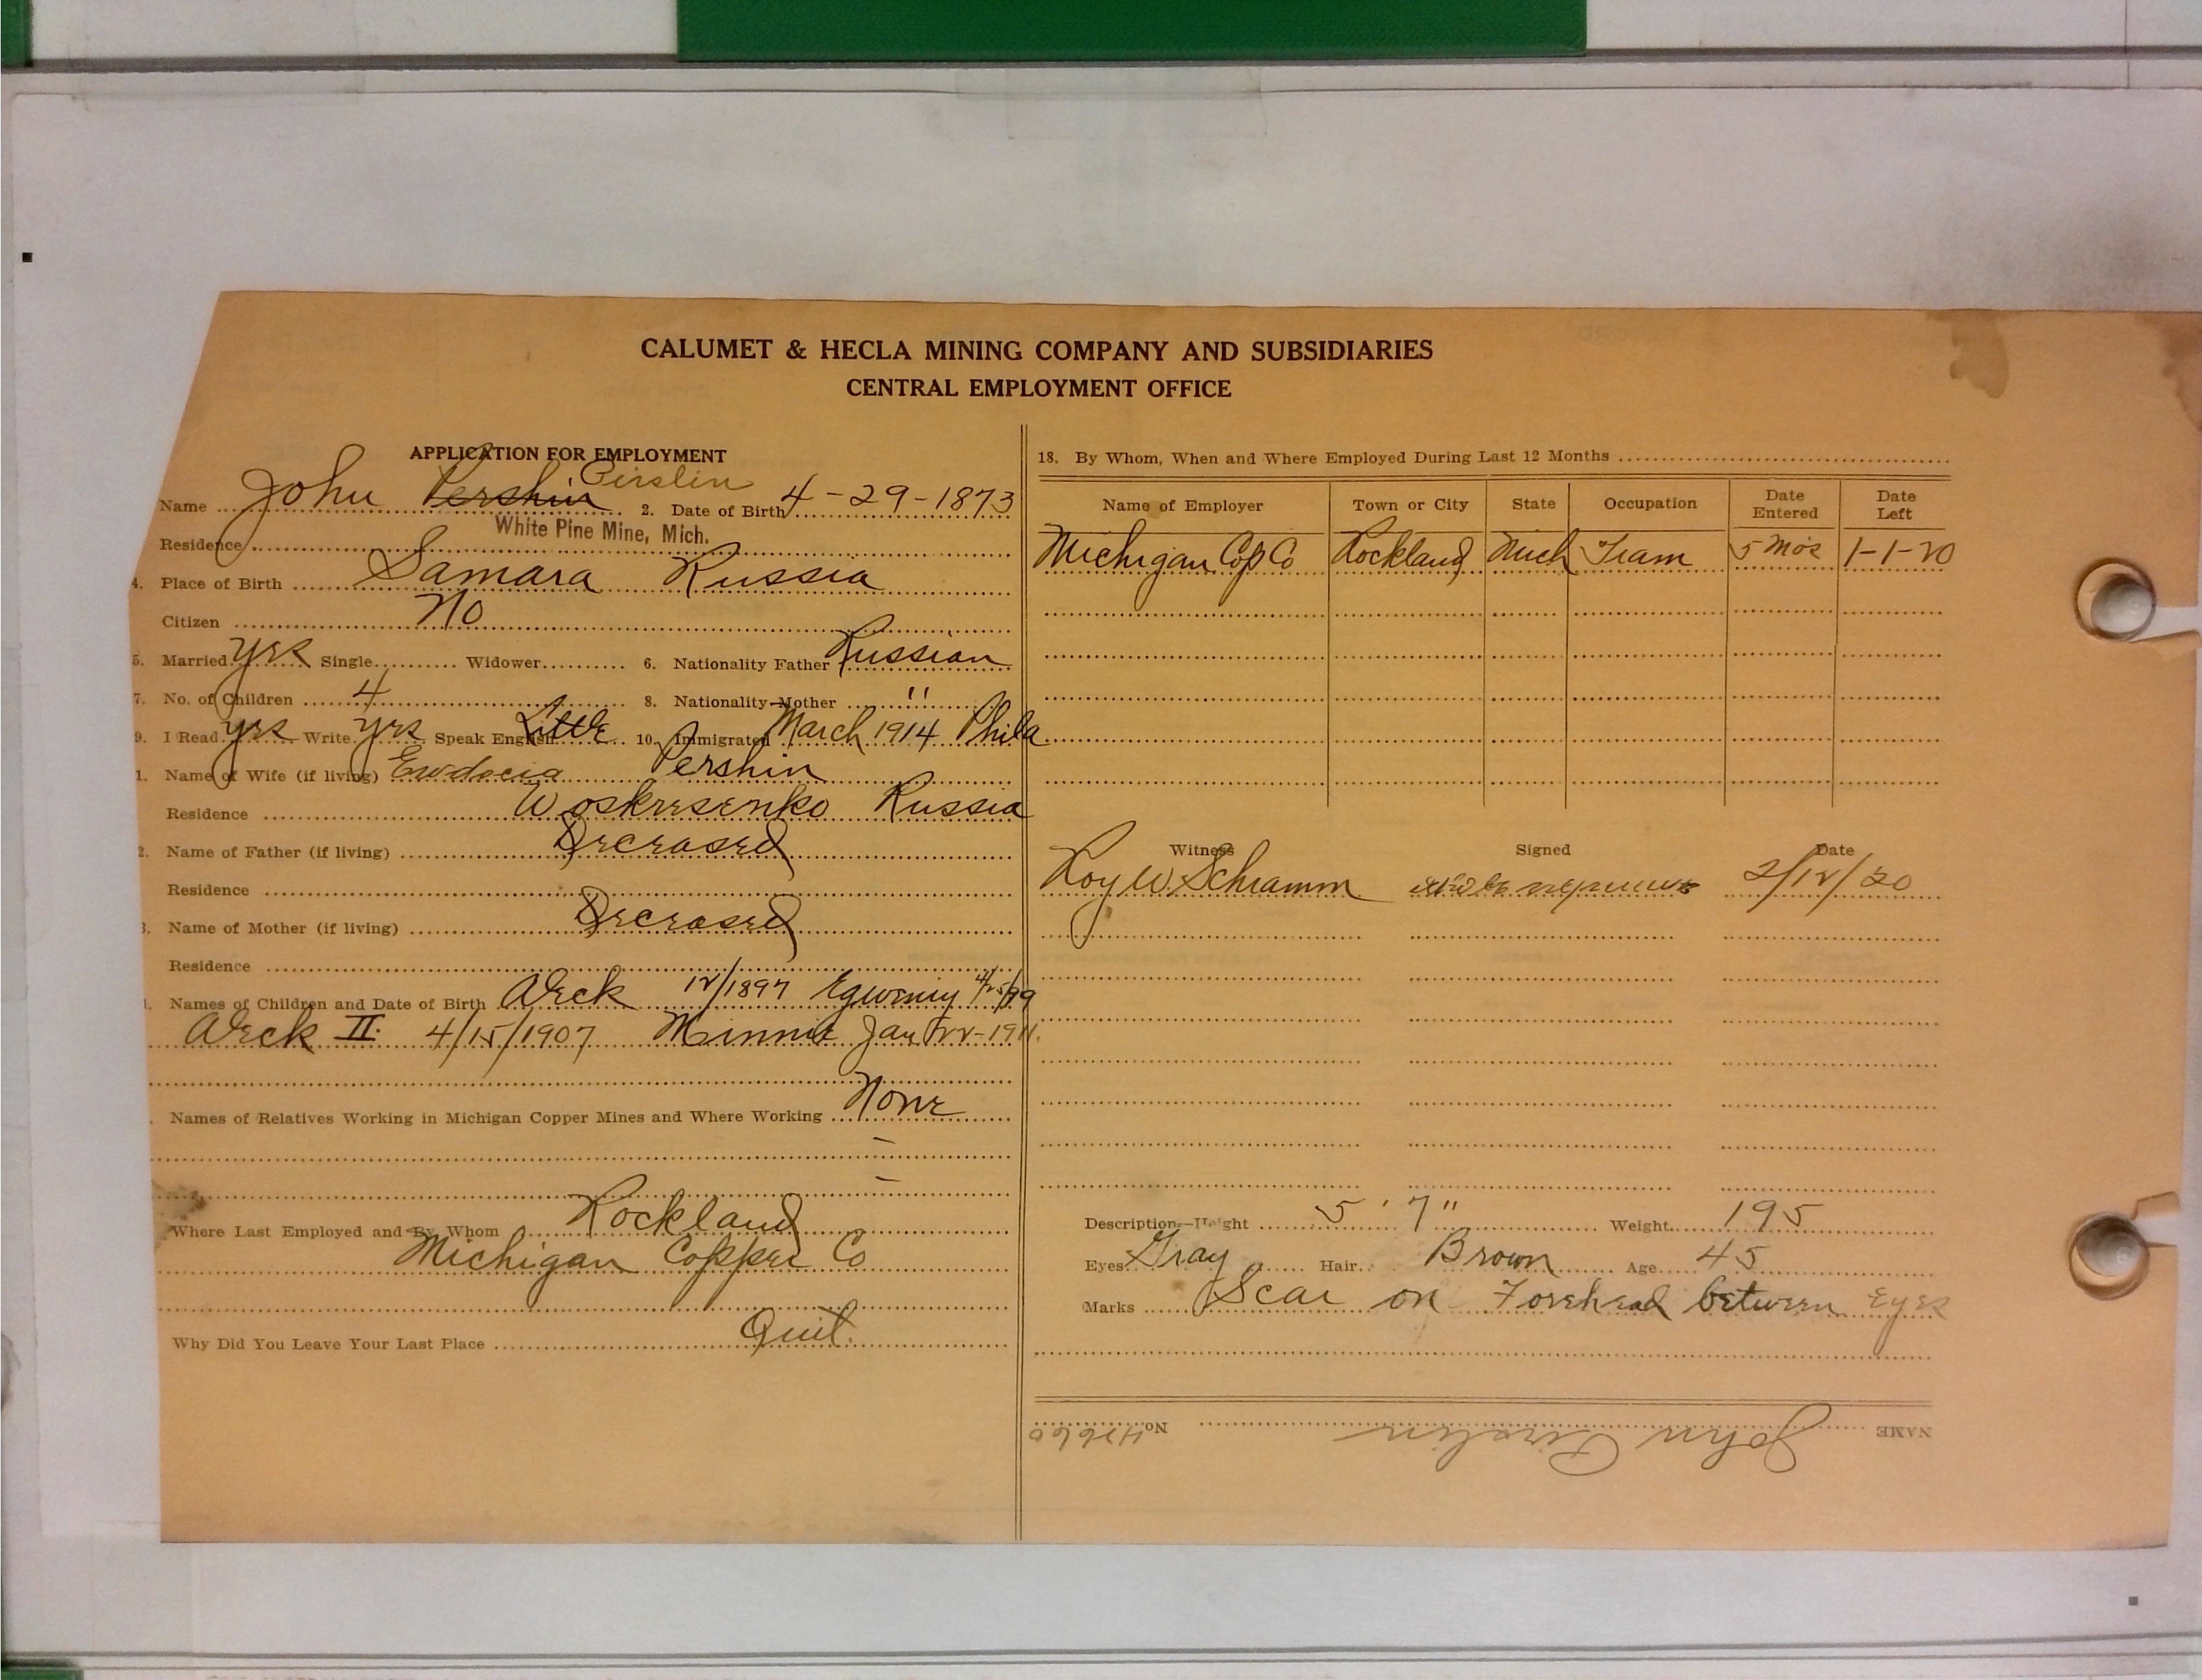 CALUMET & HECLA MINING COMPANY AND SUBSIDIARIES
CENTRAL EMPLOYMENT OFFICE
APPLICATION FOR EMPLOYMENT
Name John Pershin Peirslin 2. Date of Birth 4-29-1873
White Pine Mine, Mich.
Residence
4. Place of Birth Samara Russia
Citizen No
5. Married yes Single Widower 6. Nationality Father Russian
7. No. of Children 4 8. Nationality Mother "
9. I Read yes Write yes Speak English Little 10. Immigrated March 1914 Phila
1. Name of Wife (if living) Ewdocia Pershin
Residence Woskresenko Russia
2. Name of Father (if living) Deceased
Residence
3. Name of Mother (if living) Deceased
Residence
Names of Children and Date of Birth Aleck 12/1897 4/25/99
Aleck II. 4/15/1907 Minnie Jan 22-1911.
Names of Relatives Working in Michigan Copper Mines and Where Working None
Where Last Employed and By Whom Rockland
Michigan Copper Co
Why Did You Leave Your Last Place Quit.
18. By Whom, When and Where Employed During Last 12 Months
Name of Employer Town or City State Occupation Date Entered Date Left
Michigan Cop Co Rockland Mich Tram 5 Mo's 1-1-20
Witness Signed Date
Roy W. Schramm 2/12/20
Description—Height 5' 7" Weight 195
Eyes Gray Hair Brown Age 45
Marks Scar on Forehead between Eyes
NAME John No. 47660